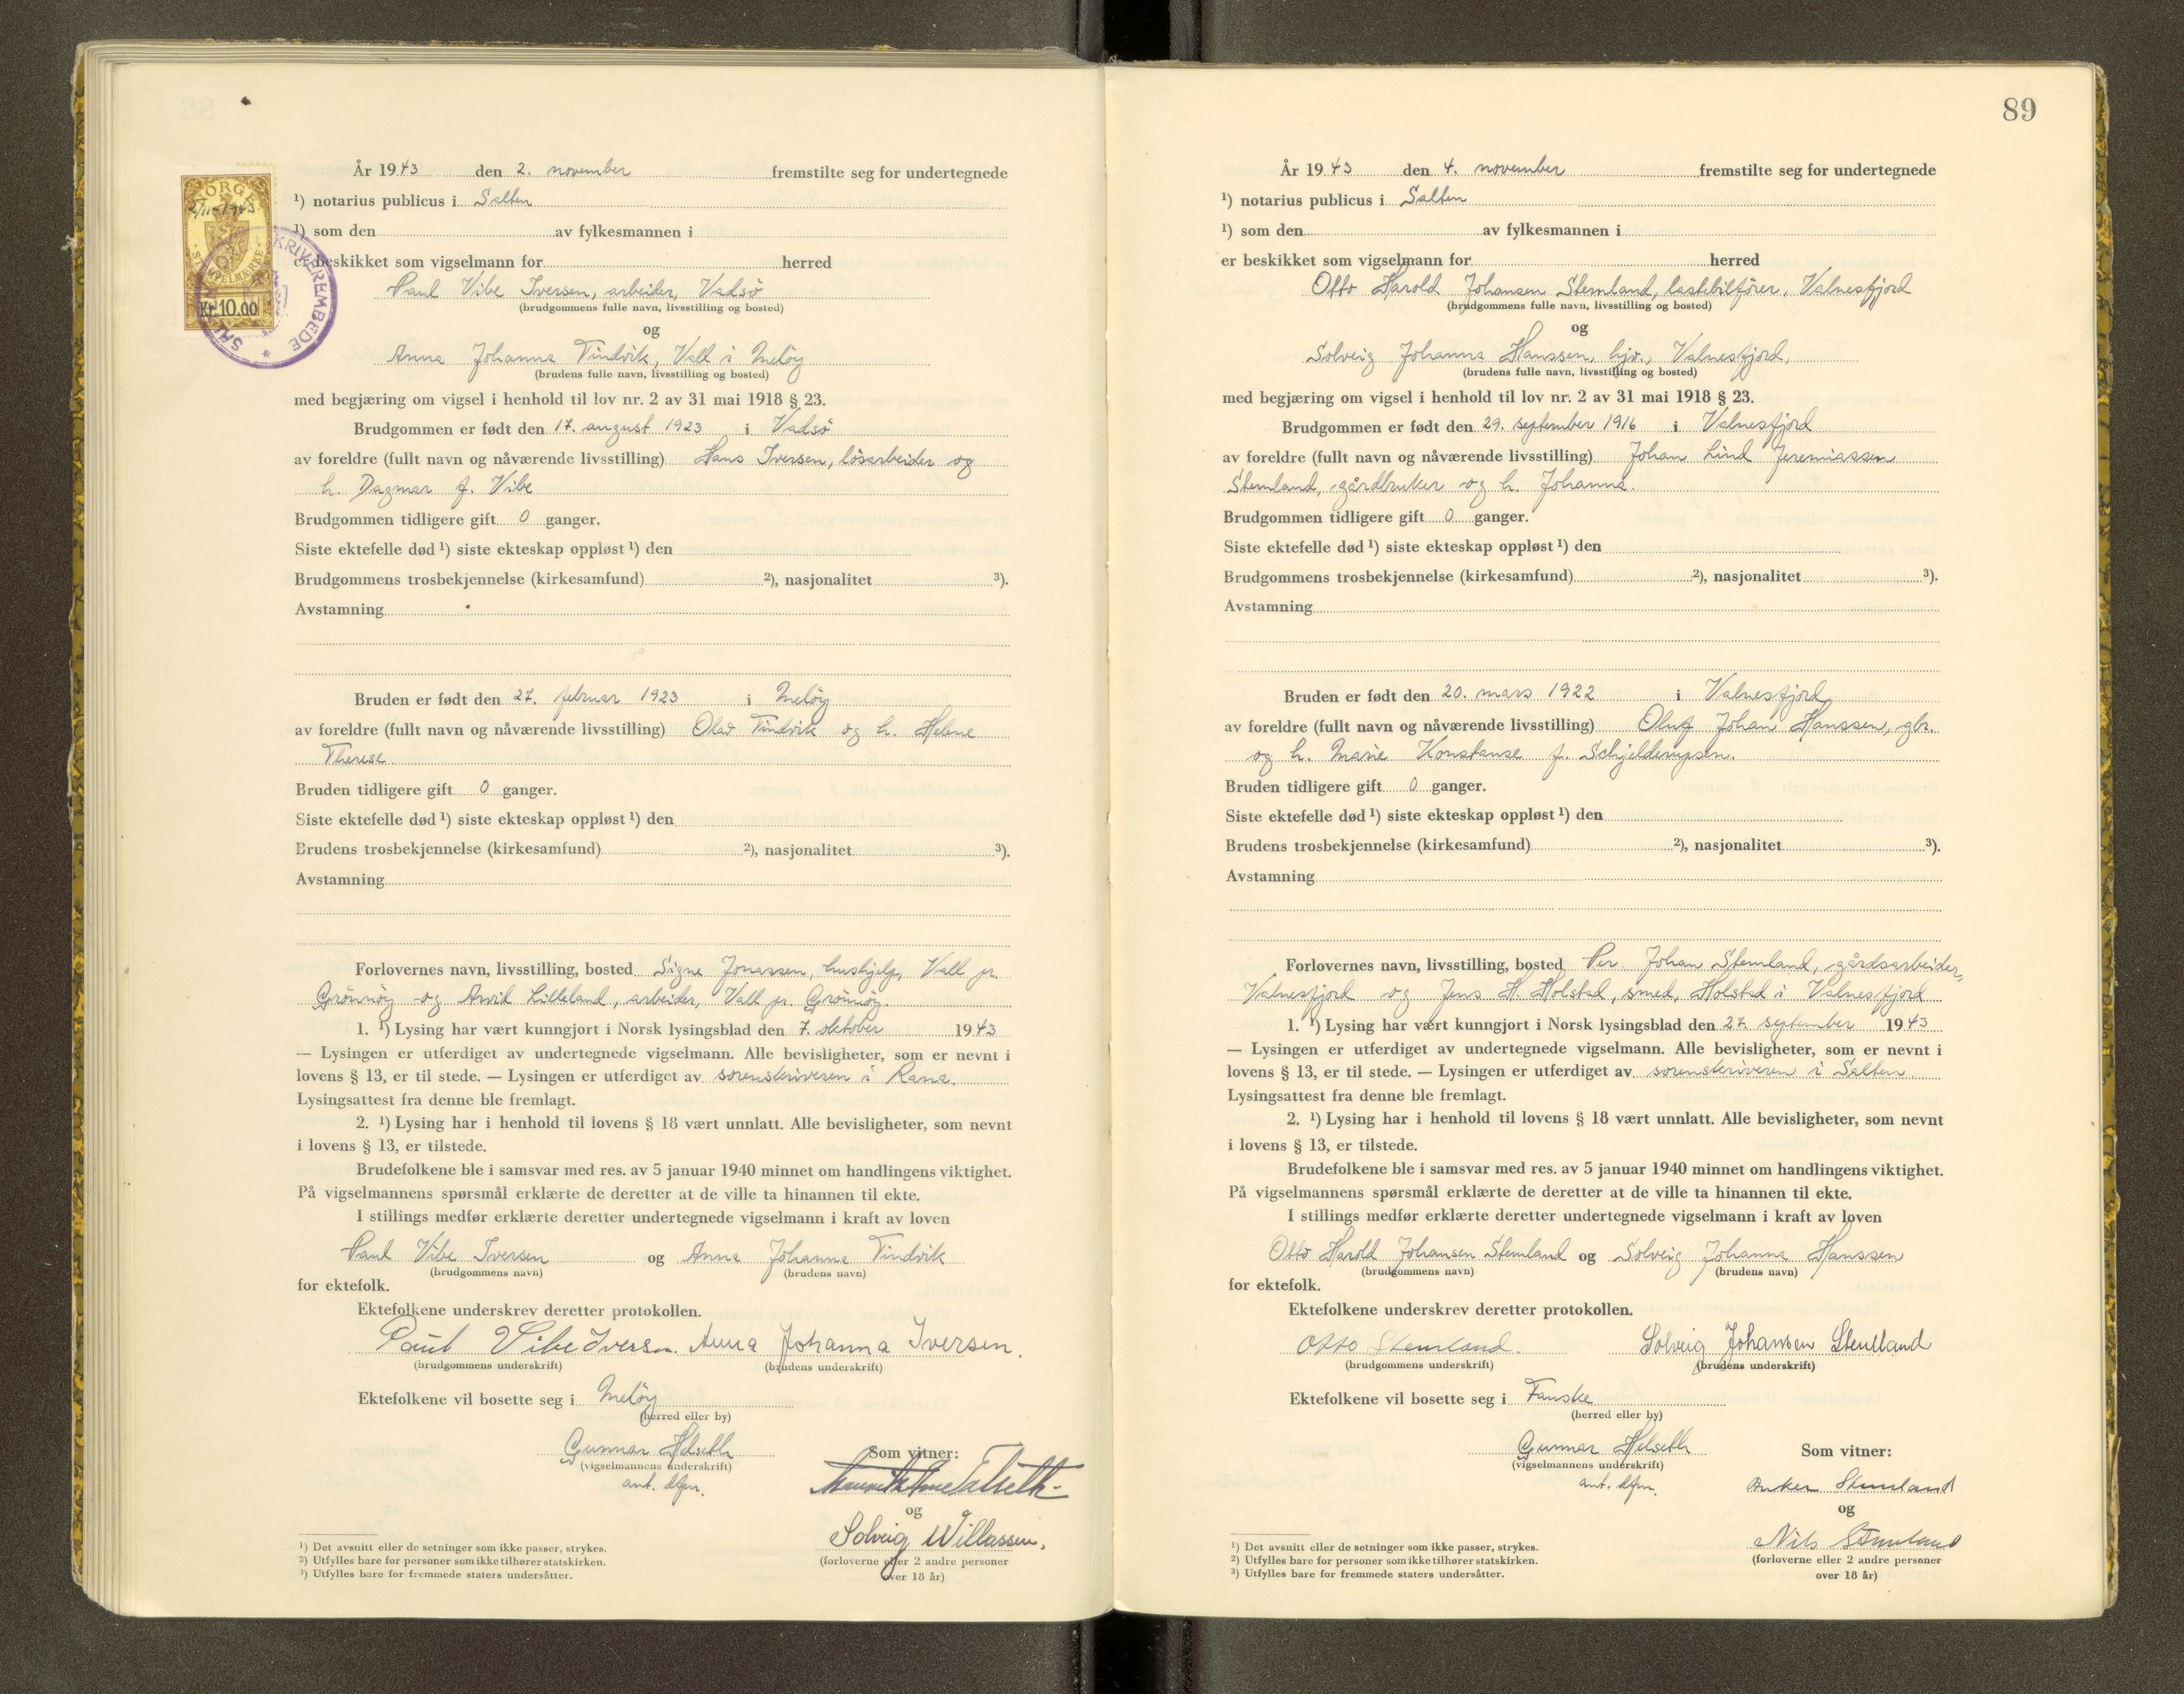 År 1943 den 2. november fremstilte seg for undertegnede
¹) notarius publicus i Salten
¹) som den av fylkesmannen i
er beskikket som vigselmann for herred
Paul Vibe Iversen, arbeider, Vadsö
(brudgommens fulle navn, livsstilling og bosted)
og
Anna Johanna Tindvik, Vall i Melöy
(brudens fulle navn, livsstilling og bosted)
med begjæring om vigsel i henhold til lov nr. 2 av 31 mai 1918 § 23.
Brudgommen er født den 17. august 1923 i Vadsö
av foreldre (fullt navn og nåværende livsstilling) Hans Iversen, lösarbeider og
h. Dagmar f. Vibe
Brudgommen tidligere gift 0 ganger.
Siste ektefelle død ¹) siste ekteskap oppløst ¹) den
Brudgommens trosbekjennelse (kirkesamfund) ²), nasjonalitet ³).
Avstamning
Bruden er født den 27. februar 1923 i Melöy
av foreldre (fullt navn og nåværende livsstilling) Olav Tindvik og h. Helene
Therese
Bruden tidligere gift 0 ganger.
Siste ektefelle død ¹) siste ekteskap oppløst ¹) den
Brudens trosbekjennelse (kirkesamfund) ²), nasjonalitet ³).
Avstamning
Forlovernes navn, livsstilling, bosted Signe Jonassen, hushjelp, Vall pr.
Grönnöy og Arvid Lilleland, arbeider, Vall pr. Grönnöy.
1. ¹) Lysing har vært kunngjort i Norsk lysingsblad den 7. oktober 1943
— Lysingen er utferdiget av undertegnede vigselmann. Alle bevisligheter, som er nevnt i
lovens § 13, er til stede. — Lysingen er utferdiget av sorenskriveren i Rana.
Lysingsattest fra denne ble fremlagt.
2. ¹) Lysing har i henhold til lovens § 18 vært unnlatt. Alle bevisligheter, som nevnt
i lovens § 13, er tilstede.
Brudefolkene ble i samsvar med res. av 5 januar 1940 minnet om handlingens viktighet.
På vigselmannens spørsmål erklærte de deretter at de ville ta hinannen til ekte.
I stillings medfør erklærte deretter undertegnede vigselmann i kraft av loven
Paul Vibe Iversen og Anna Johanna Tindvik
(brudgommens navn) (brudens navn)
for ektefolk.
Ektefolkene underskrev deretter protokollen.
Paul Vibe Iversen. Anna Johanna Iversen.
(brudgommens underskrift) (brudens underskrift)
Ektefolkene vil bosette seg i Melöy
(herred eller by)
Gunnar Helseth Som vitner:
(vigselmannens underskrift)
ant. dfm.
og
Solveig Willassen.
(forloverne eller 2 andre personer
over 18 år)
¹) Det avsnitt eller de setninger som ikke passer, strykes.
²) Utfylles bare for personer som ikke tilhører statskirken.
³) Utfylles bare for fremmede staters undersåtter.
NORGE
2/11-1943
STEMPELMERKE
Kr. 10.00
89
År 1943 den 4. november fremstilte seg for undertegnede
¹) notarius publicus i Salten
¹) som den av fylkesmannen i
er beskikket som vigselmann for herred
Otto Harold Johansen Stemland, lastebilfører, Valnesfjord
(brudgommens fulle navn, livsstilling og bosted)
og
Solveig Johanna Hanssen, hjv., Valnesfjord,
(brudens fulle navn, livsstilling og bosted)
med begjæring om vigsel i henhold til lov nr. 2 av 31 mai 1918 § 23.
Brudgommen er født den 29. september 1916 i Valnesfjord
av foreldre (fullt navn og nåværende livsstilling) Johan Lind Jeremiassen
Stemland, gårdbruker og h. Johanna.
Brudgommen tidligere gift 0 ganger.
Siste ektefelle død ¹) siste ekteskap oppløst ¹) den
Brudgommens trosbekjennelse (kirkesamfund) ²), nasjonalitet ³).
Avstamning
Bruden er født den 20. mars 1922 i Valnesfjord
av foreldre (fullt navn og nåværende livsstilling) Oluf Johan Hanssen, gbr.
og h. Marie Konstanse f. Schjelderupsen.
Bruden tidligere gift 0 ganger.
Siste ektefelle død ¹) siste ekteskap oppløst ¹) den
Brudens trosbekjennelse (kirkesamfund) ²), nasjonalitet ³).
Avstamning
Forlovernes navn, livsstilling, bosted Per Johan Stemland, gårdsarbeider,
Valnesfjord og Jens H. Holstad, smed, Holstad i Valnesfjord
1. ¹) Lysing har vært kunngjort i Norsk lysingsblad den 27. september 1943
— Lysingen er utferdiget av undertegnede vigselmann. Alle bevisligheter, som er nevnt i
lovens § 13, er til stede. — Lysingen er utferdiget av sorenskriveren i Salten.
Lysingsattest fra denne ble fremlagt.
2. ¹) Lysing har i henhold til lovens § 18 vært unnlatt. Alle bevisligheter, som nevnt
i lovens § 13, er tilstede.
Brudefolkene ble i samsvar med res. av 5 januar 1940 minnet om handlingens viktighet.
På vigselmannens spørsmål erklærte de deretter at de ville ta hinannen til ekte.
I stillings medfør erklærte deretter undertegnede vigselmann i kraft av loven
Otto Harold Johansen Stemland og Solveig Johanna Hanssen
(brudgommens navn) (brudens navn)
for ektefolk.
Ektefolkene underskrev deretter protokollen.
Otto Stemland. Solveig Johansen Stemland
(brudgommens underskrift) (brudens underskrift)
Ektefolkene vil bosette seg i Fauske
(herred eller by)
Gunnar Helseth Som vitner:
(vigselmannens underskrift)
ant. dfm. Anker Stemland
og
Nils Stemland
(forloverne eller 2 andre personer
over 18 år)
¹) Det avsnitt eller de setninger som ikke passer, strykes.
²) Utfylles bare for personer som ikke tilhører statskirken.
³) Utfylles bare for fremmede staters undersåtter.